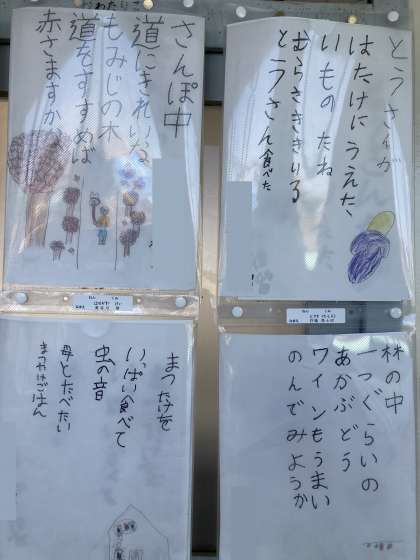 とうさんが
はたけにうえた、
いものたね
むらさききいろ
とうさん食べた
さんぽ中
道にきれいな
もみじの木
道をすすめば
赤さますか
林の中
一つぐらいの
あかぶどう
ワインもうまい
のんでみようか
まつたけを
いっぱい食べて
虫の音
母とたべたい
まつたけごはん